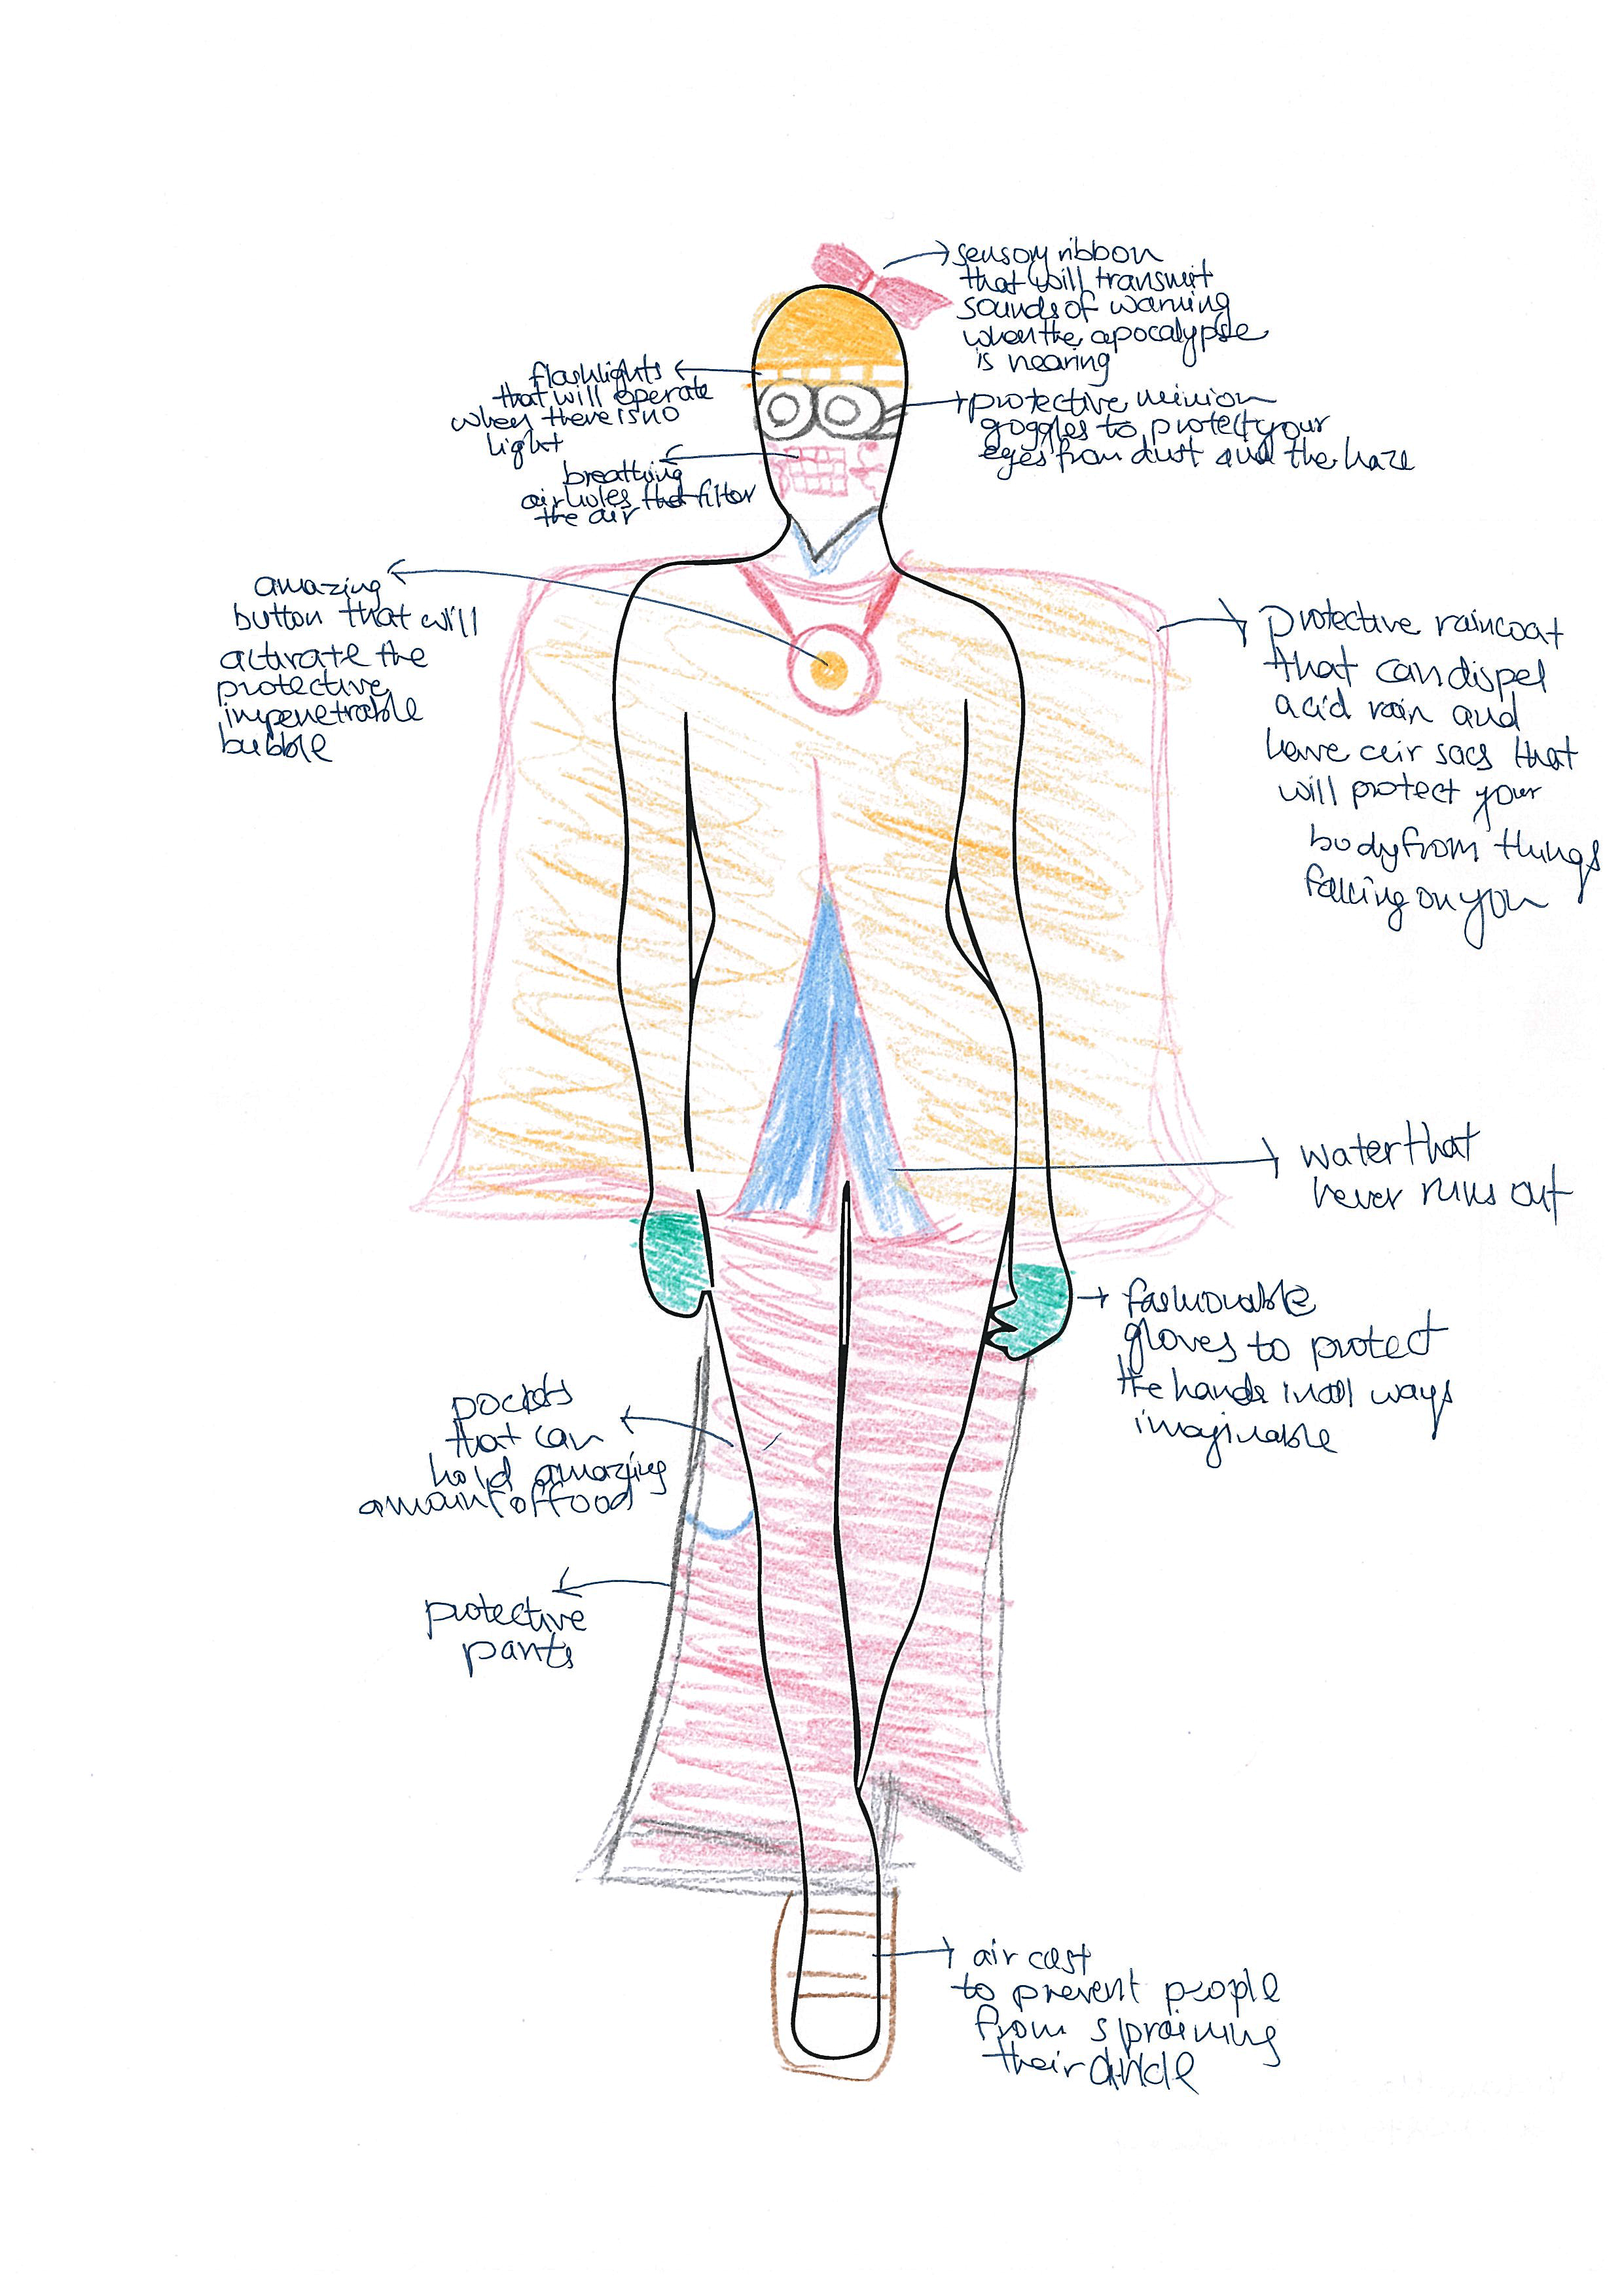 sensory ribbon
that will transmit
sounds of warning
when the apocalypse
is nearing
flashlights
that will operate
when there is no
light
protective minion
goggles to protect your
eyes from dust and the haze
breathing
air holes that filter
the air
amazing
button that will
activate the
protective
impenetrable
bubble
protective raincoat
that can dispel
acid rain and
have air sacs that
will protect your
body from things
falling on you
water that
never runs out
fashionable
gloves to protect
the hands in all ways
imaginable
pockets
that can
hold amazing
amount of food
protective
pants
air cast
to prevent people
from spraining
their ankle